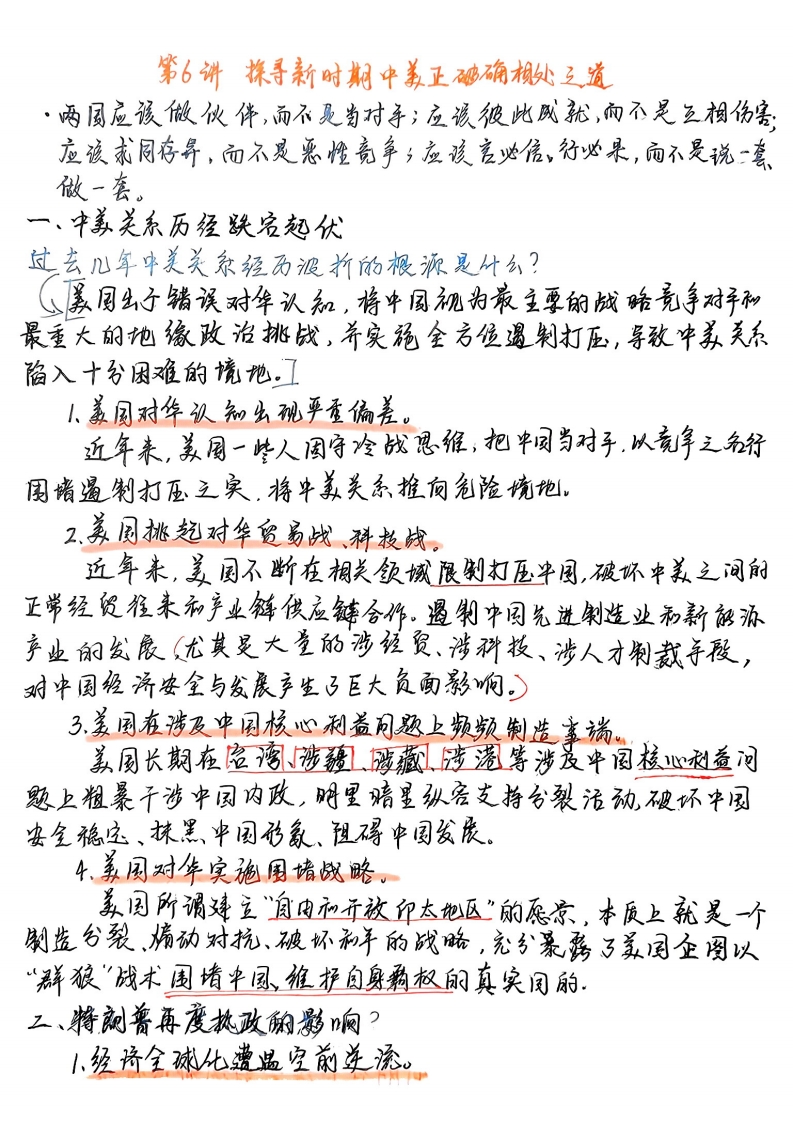 第6讲 探寻新时期中美正确相处之道
·两国应该做伙伴,而不是当对手;应该彼此成就,而不是互相伤害;
应该求同存异,而不是恶性竞争;应该言必信、行必果,而不是说一套
做一套。
一、中美关系历经跌宕起伏
过去几年中美关系经历波折的根源是什么?
[美国出于错误对华认知,将中国视为最主要的战略竞争对手和
最重大的地缘政治挑战,并实施全方位遏制打压,导致中美关系
陷入十分困难的境地。]
1.美国对华认知出现严重偏差。
近年来,美国一些人囿守冷战思维,把中国当对手,以竞争之名行
围堵遏制打压之实,将中美关系推向危险境地。
2.美国挑起对华贸易战、科技战。
近年来,美国不断在相关领域限制打压中国,破坏中美之间的
正常经贸往来和产业链供应链合作。遏制中国先进制造业和新能源
产业的发展(尤其是大量的涉经贸、涉科技、涉人才制裁手段,
对中国经济安全与发展产生了巨大负面影响。)
3.美国在涉及中国核心利益问题上频频制造事端。
美国长期在台湾、涉疆、涉藏、涉港等涉及中国核心利益问
题上粗暴干涉中国内政,明里暗里纵容支持分裂活动,破坏中国
安全稳定、抹黑中国形象、阻碍中国发展。
4.美国对华实施围堵战略。
美国所谓建立“自由和开放印太地区”的愿景,本质上就是一个
制造分裂、煽动对抗、破坏和平的战略,充分暴露了美国企图以
“群狼”战术围堵中国、维护自身霸权的真实目的.
二、特朗普再度执政的影响?
1.经济全球化遭遇空前逆流。